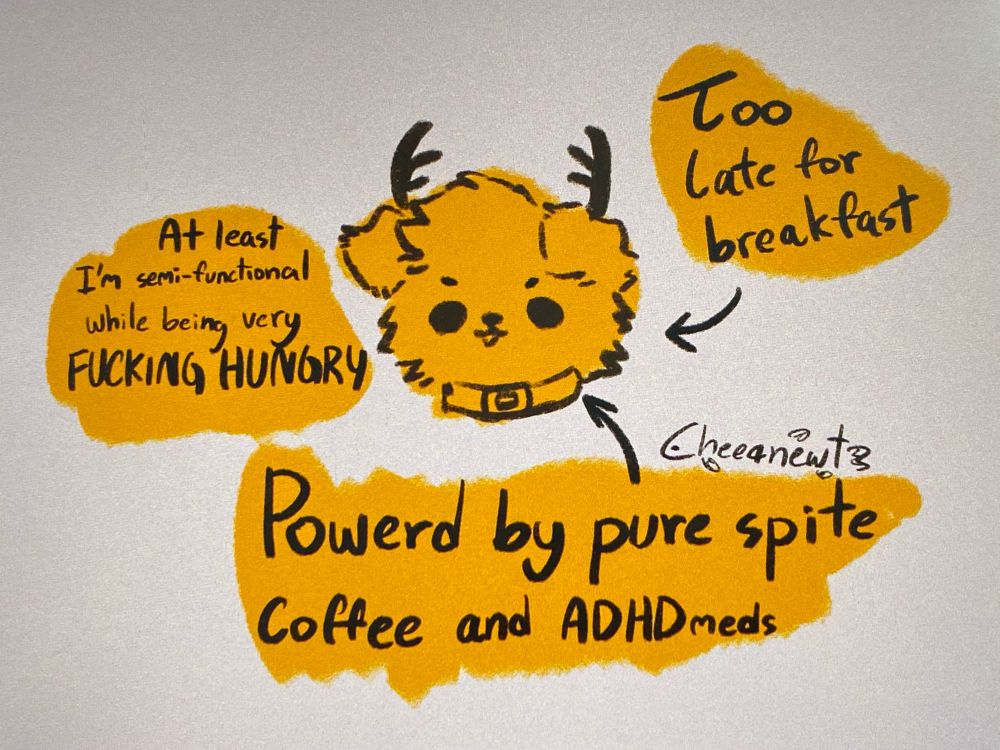 Too
late for
breakfast
At least
I'm semi-functional
while being very
FUCKING HUNGRY
Cheeanewt
Powerd by pure spite
Coffee and ADHD meds